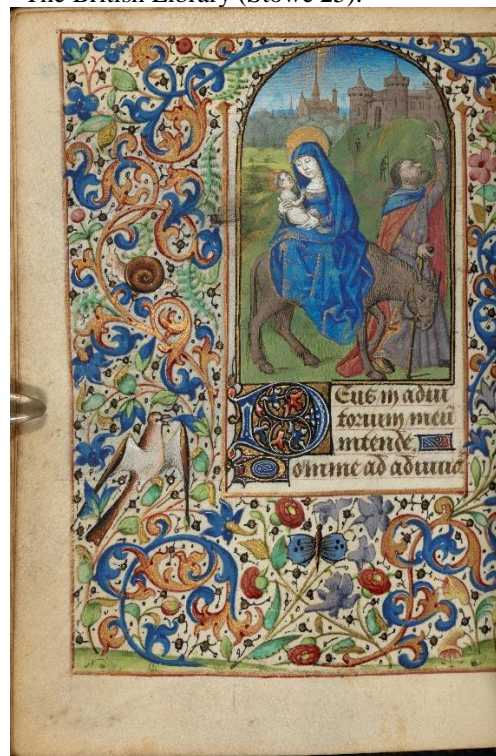 The British Library (Stowe 25).
Deus in adiu
torium meū
intende
Domine ad adiuua